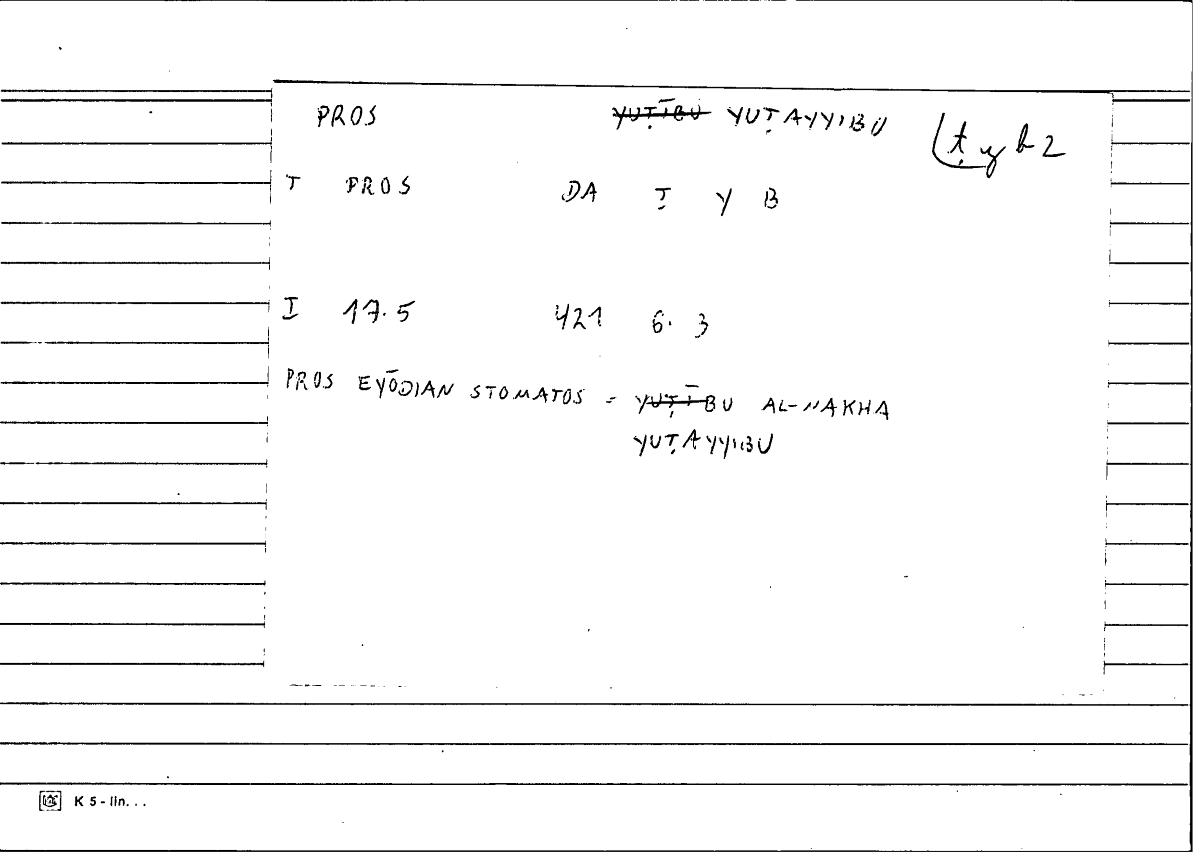 PROS YUṬĪBU YUṬAYYIBU ṭyb2
T PROS DA Ṭ Y B
I 17.5 421 6. 3
PROS EYŌDIAN STOMATOS = YUṬĪBU AL-NAKHA
YUṬAYYIBU
K 5 - lin. . .